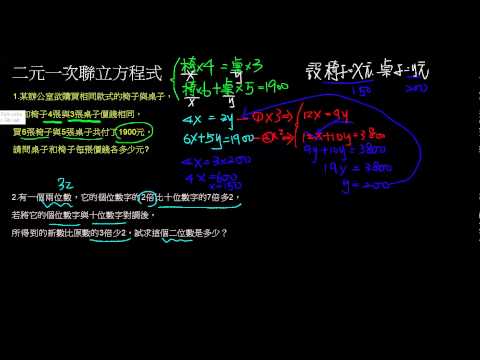 二元一次聯立方程式
1.某辦公室欲購買相同款式的椅子與桌子,
和椅子4張與3張桌子價錢相同,
買6張椅子與5張桌子共付了1900元,
請問桌子和椅子每張價錢各多少元?
椅×4=桌×3
x y
椅×6+桌×5=1900
x y
4x = 2y
6x+5y=1900
4x = 3×200
4x = 600
x=150
設椅子=x元 桌子=y元
150 200
①×3 12x=9y
②×2 12x+10y=3800
9y+10y=3800
19y = 3800
y=200
32
2.有一個兩位數,它的個位數字的2倍比十位數字的7倍多2,
若將它的個位數字與十位數字對調後,
所得到的新數比原數的3倍少2,試求這個二位數是多少?